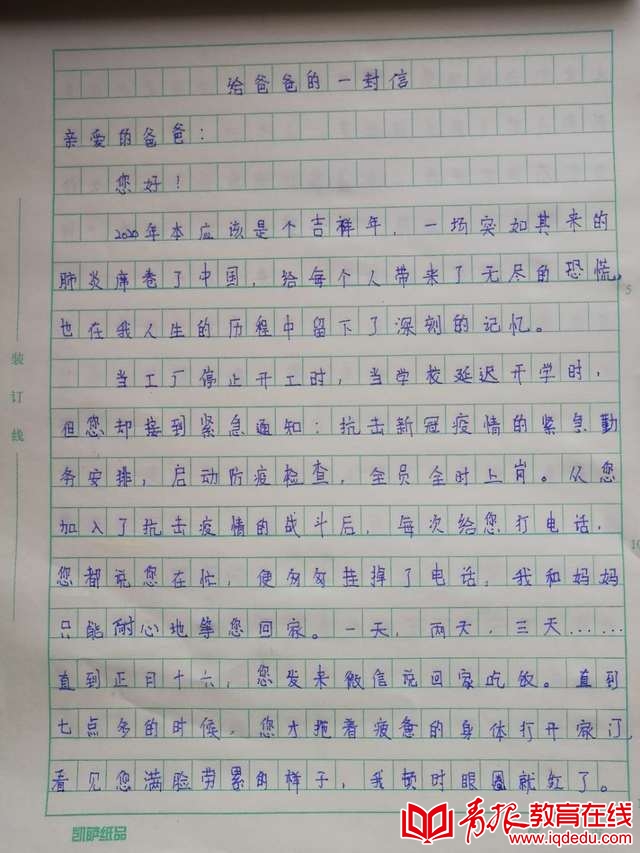 给爸爸的一封信
亲爱的爸爸：
您好！
2020年本应该是个吉祥年，一场突如其来的
肺炎席卷了中国，给每个人带来了无尽的恐慌，
也在我人生的历程中留下了深刻的记忆。
当工厂停止开工时，当学校延迟开学时，
但您却接到紧急通知：抗击新冠疫情的紧急勤
务安排，启动防疫检查，全员全时上岗。从您
加入了抗击疫情的战斗后，每次给您打电话，
您都说您在忙，便匆匆挂掉了电话，我和妈妈
只能耐心地等您回家。一天，两天，三天……
直到正月十六，您发来微信说回家吃饭。直到
七点多的时候，您才拖着疲惫的身体打开家门，
看见您满脸劳累的样子，我顿时眼圈就红了。
装订线
5
10
凯萨纸品
青报教育在线
www.iqdedu.com